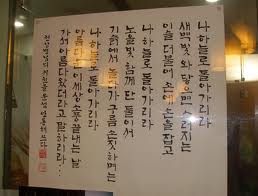 나 하늘로 돌아가리라
새벽빛 와 닿으면 스러지는
이슬 더불어 손에 손을 잡고
나 하늘로 돌아가리라
노을빛 함께 단 둘이서
기슭에서 놀다가 구름 손짓하며는
나 하늘로 돌아가리라
아름다운 이 세상 소풍 끝내는 날
가서 아름다웠더라고 말하리라···
천상병님의 귀천을 쓰다